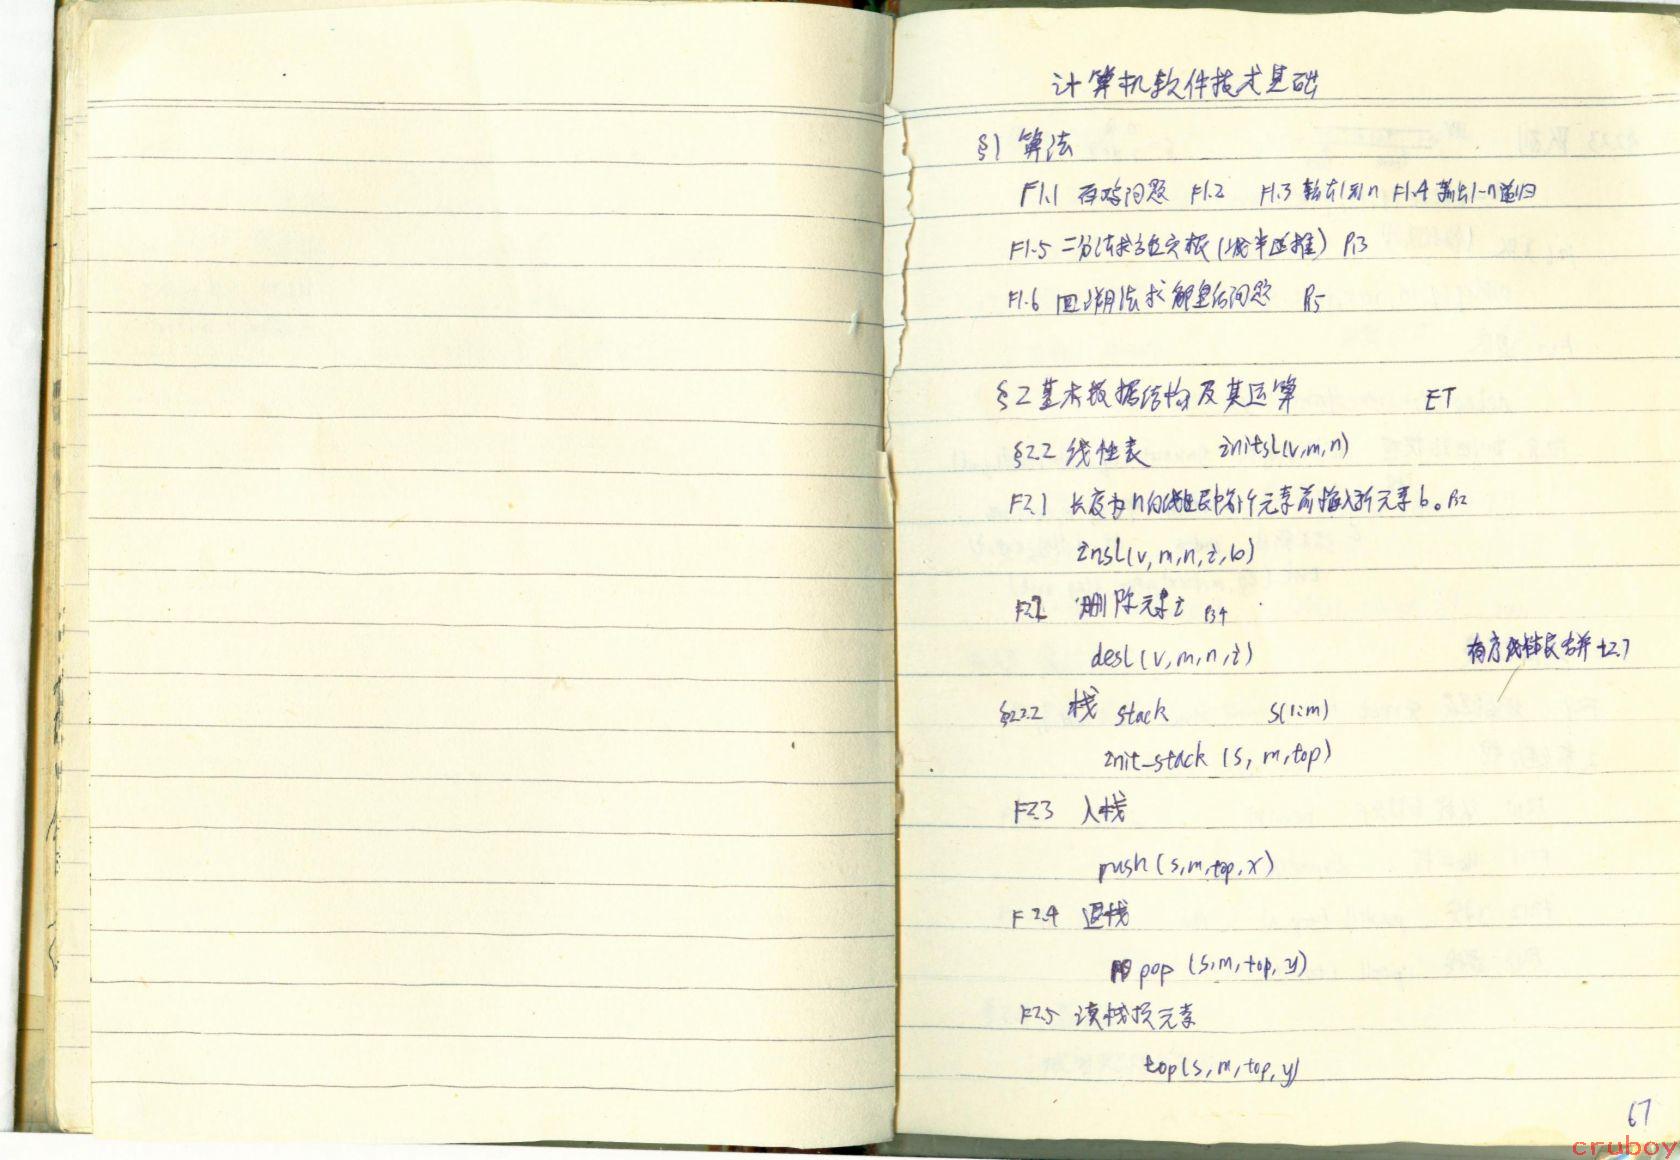 计算机软件技术基础
§1 算法
F1.1 百鸡问题 F1.2 F1.3 输出1到n F1.4 输出1-n递归
F1.5 二分法求方程实根(减半递推) P13
F1.6 回溯法求解皇后问题 P15
§2 基本数据结构及其运算 ET
§2.2 线性表 initsl(v,m,n)
F2.1 长度为n的线性表中第i个元素前插入新元素b。P32
insl(v,m,n,i,b)
F2.2 删除元素i P34
desl(v,m,n,i)
有序线性表合并
§2.2.2 栈 stack S(1:m)
init_stack (s, m,top)
F2.3 入栈
push (s,m,top,x)
F2.4 退栈
pop (s,m,top,y)
F2.5 读栈顶元素
top(s,m,top,y)
67
cruboy